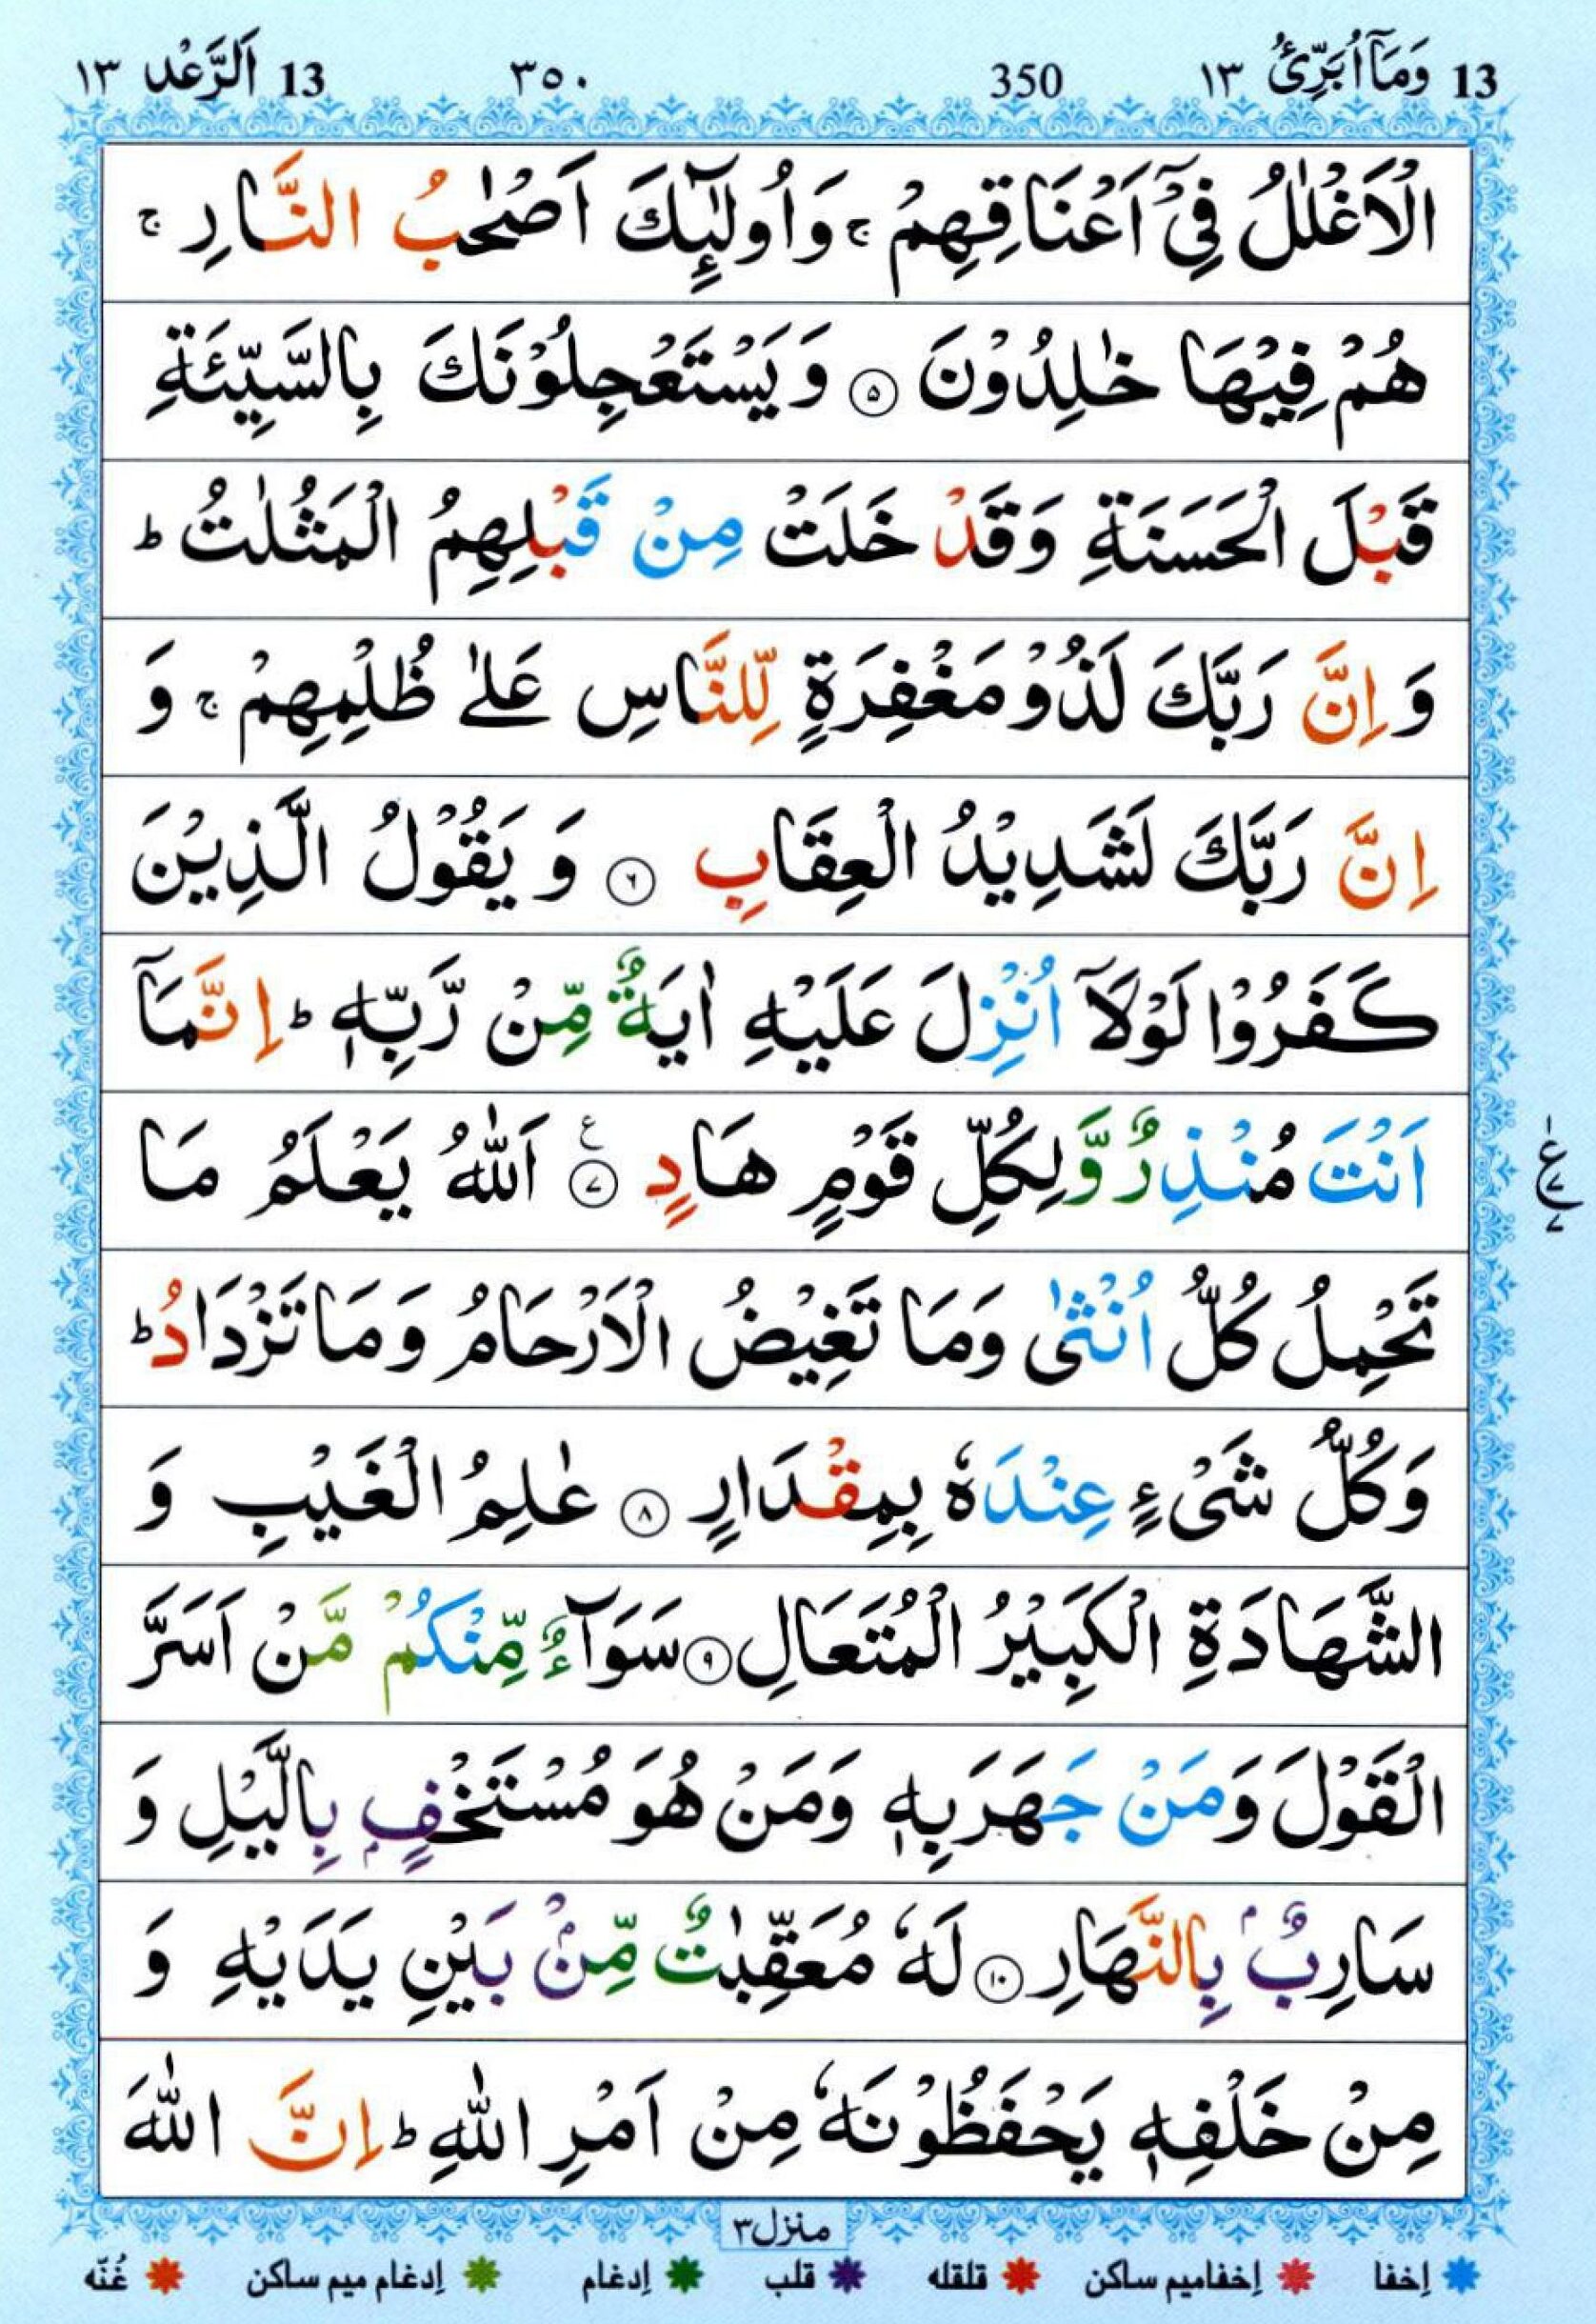 13 وَمَآ اُبَرِّئُ ١٣ 350 ٣٥٠ 13 اَلرَّعْد ١٣
الْاَغْلٰلُ فِيْۤ اَعْنَاقِهِمْ ۚ وَاُولٰٓئِكَ اَصْحٰبُ النَّارِ ۚ
هُمْ فِيْهَا خٰلِدُوْنَ ۝۵ وَيَسْتَعْجِلُوْنَكَ بِالسَّيِّئَةِ
قَبْلَ الْحَسَنَةِ وَقَدْ خَلَتْ مِنْ قَبْلِهِمُ الْمَثُلٰتُ ؕ
وَ اِنَّ رَبَّكَ لَذُوْ مَغْفِرَةٍ لِّلنَّاسِ عَلٰى ظُلْمِهِمْ ۚ وَ
اِنَّ رَبَّكَ لَشَدِيْدُ الْعِقَابِ ۝۶ وَ يَقُوْلُ الَّذِيْنَ
كَفَرُوْا لَوْلَاۤ اُنْزِلَ عَلَيْهِ اٰيَةٌ مِّنْ رَّبِّهٖ ؕ اِنَّمَاۤ
اَنْتَ مُنْذِرٌ وَّلِكُلِّ قَوْمٍ هَادٍ ۝۷ ع اَللّٰهُ يَعْلَمُ مَا
تَحْمِلُ كُلُّ اُنْثٰى وَمَا تَغِيْضُ الْاَرْحَامُ وَمَا تَزْدَادُ ؕ
وَكُلُّ شَيْءٍ عِنْدَهٗ بِمِقْدَارٍ ۝۸ عٰلِمُ الْغَيْبِ وَ
الشَّهَادَةِ الْكَبِيْرُ الْمُتَعَالِ ۝۹ سَوَآءٌ مِّنْكُمْ مَّنْ اَسَرَّ
الْقَوْلَ وَمَنْ جَهَرَ بِهٖ وَمَنْ هُوَ مُسْتَخْفٍۭ بِالَّيْلِ وَ
سَارِبٌۢ بِالنَّهَارِ ۝۱۰ لَهٗ مُعَقِّبٰتٌ مِّنْۢ بَيْنِ يَدَيْهِ وَ
مِنْ خَلْفِهٖ يَحْفَظُوْنَهٗ مِنْ اَمْرِ اللّٰهِ ؕ اِنَّ اللّٰهَ
منزل٣
إخفا إخفامیم ساکن قلقله قلب إدغام إدغام میم ساکن غُنّه